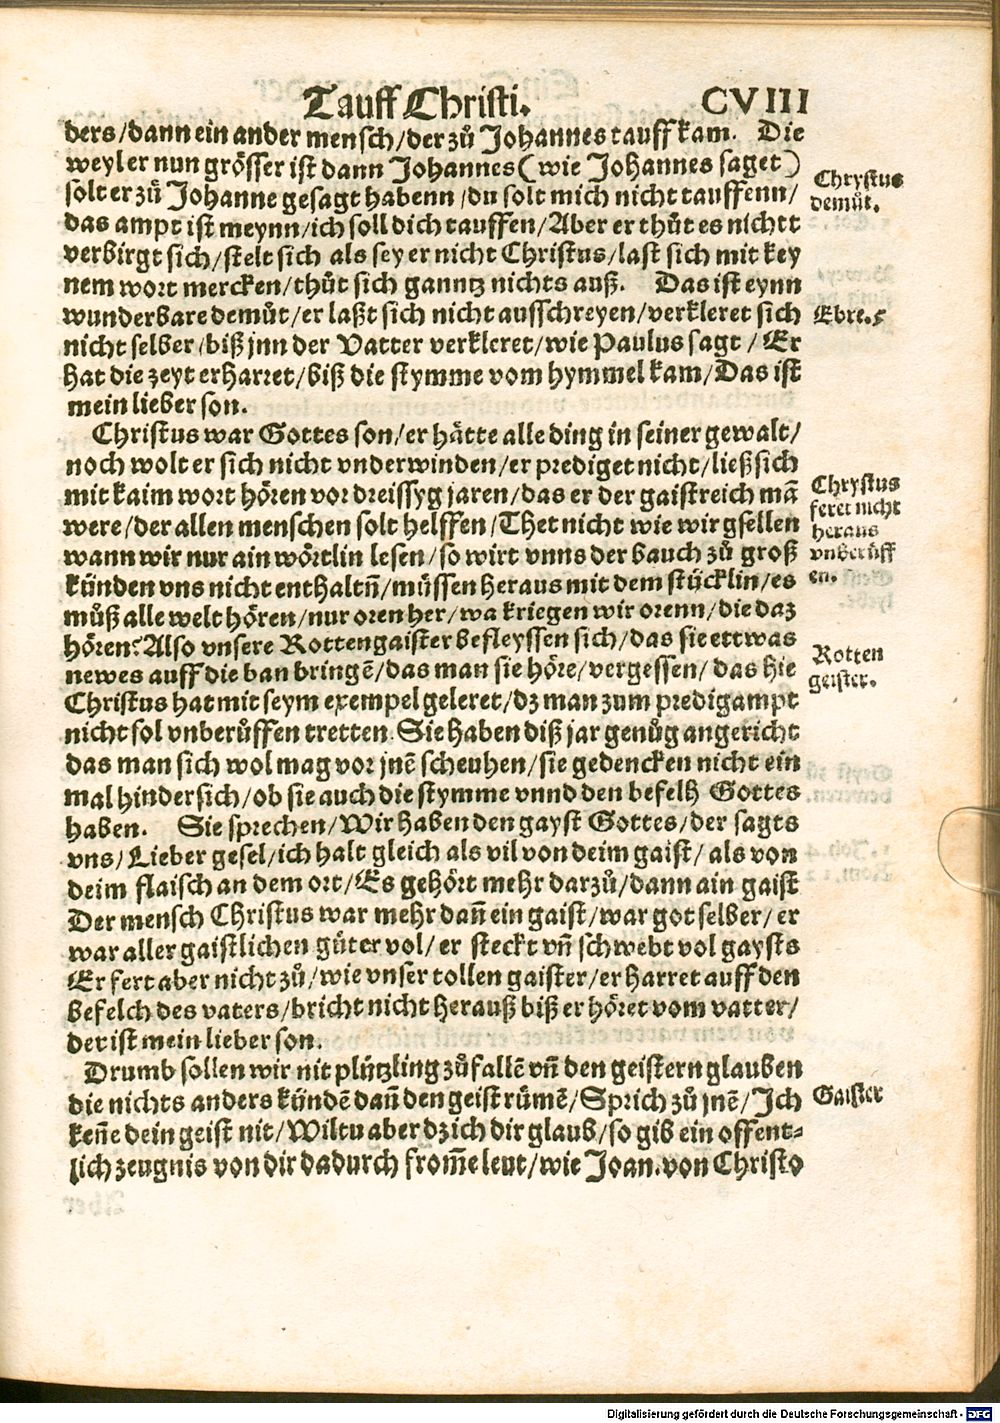 Tauff Christi. CVIII
ders/dann ein ander mensch/der zů Johannes tauff kam. Die
weyler nun grösser ist dann Johannes (wie Johannes saget)
solt er zů Johanne gesagt habenn/du solt mich nicht tauffenn/
das ampt ist meynn/ich soll dich tauffen/Aber er thůt es nichtt
verbirgt sich/stelt sich als sey er nicht Christus/last sich mit key
nem wort mercken/thůt sich ganntz nichts auß. Das ist eynn
wunderbare demůt/er laßt sich nicht ausschreyen/verkleret sich
nicht selber/biß jnn der Vatter verkleret/wie Paulus sagt/Er
hat die zeyt erharret/biß die stymme vom hymmel kam/Das ist
mein lieber son.
Christus war Gottes son/er hätte alle ding in seiner gewalt/
noch wolt er sich nicht vnderwinden/er prediget nicht/ließ sich
mit kaim wort hören vor dreissyg jaren/das er der gaistreich mā
were/der allen menschen solt helffen/Thet nicht wie wir gsellen
wann wir nur ain wörtlin lesen/so wirt vnns der bauch zů groß
künden vns nicht enthaltn̄/müssen heraus mit dem stücklin/es
můß alle welt hören/nur oren her/wa kriegen wir orenn/die daz
hören? Also vnsere Rottengaister befleyssen sich/das sie ettwas
newes auff die ban bringē/das man sie höre/vergessen/das hie
Christus hat mit seym exempel geleret/dz man zum predigampt
nicht sol vnberůffen tretten. Sie haben diß jar genůg angericht
das man sich wol mag vor jnē scheuhen/sie gedencken nicht ein
mal hindersich/ob sie auch die stymme vnnd den befelh Gottes
haben. Sie sprechen/Wir haben den gayst Gottes/der sagts
vns/Lieber gesel/ich halt gleich als vil von deim gaist/als von
deim flaisch an dem ort/Es gehört mehr darzů/dann ain gaist
Der mensch Christus war mehr dan̄ ein gaist/war got selber/er
war aller gaistlichen güter vol/er steckt vn̄ schwebt vol gaysts
Er fert aber nicht zů/wie vnser tollen gaister/er harret auff den
befelch des vaters/bricht nicht herauß biß er höret vom vatter/
der ist mein lieber son.
Drumb sollen wir nit plützling zůfallē vn̄ den geistern glauben
die nichts anders kündē dan̄ den geist rümē/Sprich zů jnē/Ich
ken̄e dein geist nit/Wiltu aber dz ich dir glaub/so gib ein offent-
lich zeugnis von dir dadurch from̄e leut/wie Joan. von Christo
Chrystus
demůt.
Ebre. 5
Chrystus
feret nicht
heraus
vnberüff
en.
Rotten
geister.
Gaister
Digitalisierung gefördert durch die Deutsche Forschungsgemeinschaft - DFG